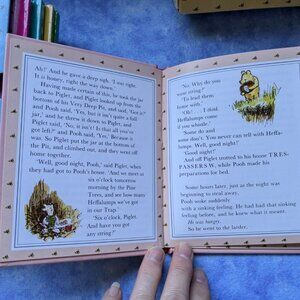 Ah!" And he gave a deep sigh. "I was right.
It is honey, right the way down."
Having made certain of this, he took the jar
back to Piglet, and Piglet looked up from the
bottom of his Very Deep Pit, and said, "Got it?"
and Pooh said, "Yes, but it isn't quite a full
jar," and he threw it down to Piglet, and
Piglet said, "No, it isn't! Is that all you've
got left?" and Pooh said, "Yes." Because it
was. So Piglet put the jar at the bottom of
the Pit, and climbed out, and they went off
home together.
"Well, good night, Pooh," said Piglet, when
they had got to Pooh's house. "And we meet at
six o'clock tomorrow
morning by the Pine
Trees, and see how many
Heffalumps we've got
in our Trap."
"Six o'clock, Piglet.
And have you got
any string?"
"No. Why do you
want string?"
"To lead them
home with."
"Oh! ... I think
Heffalumps come
if you whistle."
"Some do and
some don't. You never can tell with Heffa-
lumps. Well, good night!"
"Good night!"
And off Piglet trotted to his house TRES-
PASSERS W, while Pooh made his
preparations for bed.
Some hours later, just as the night was
beginning to steal away,
Pooh woke suddenly
with a sinking feeling. He had had that sinking
feeling before, and he knew what it meant.
He was hungry.
So he went to the larder,